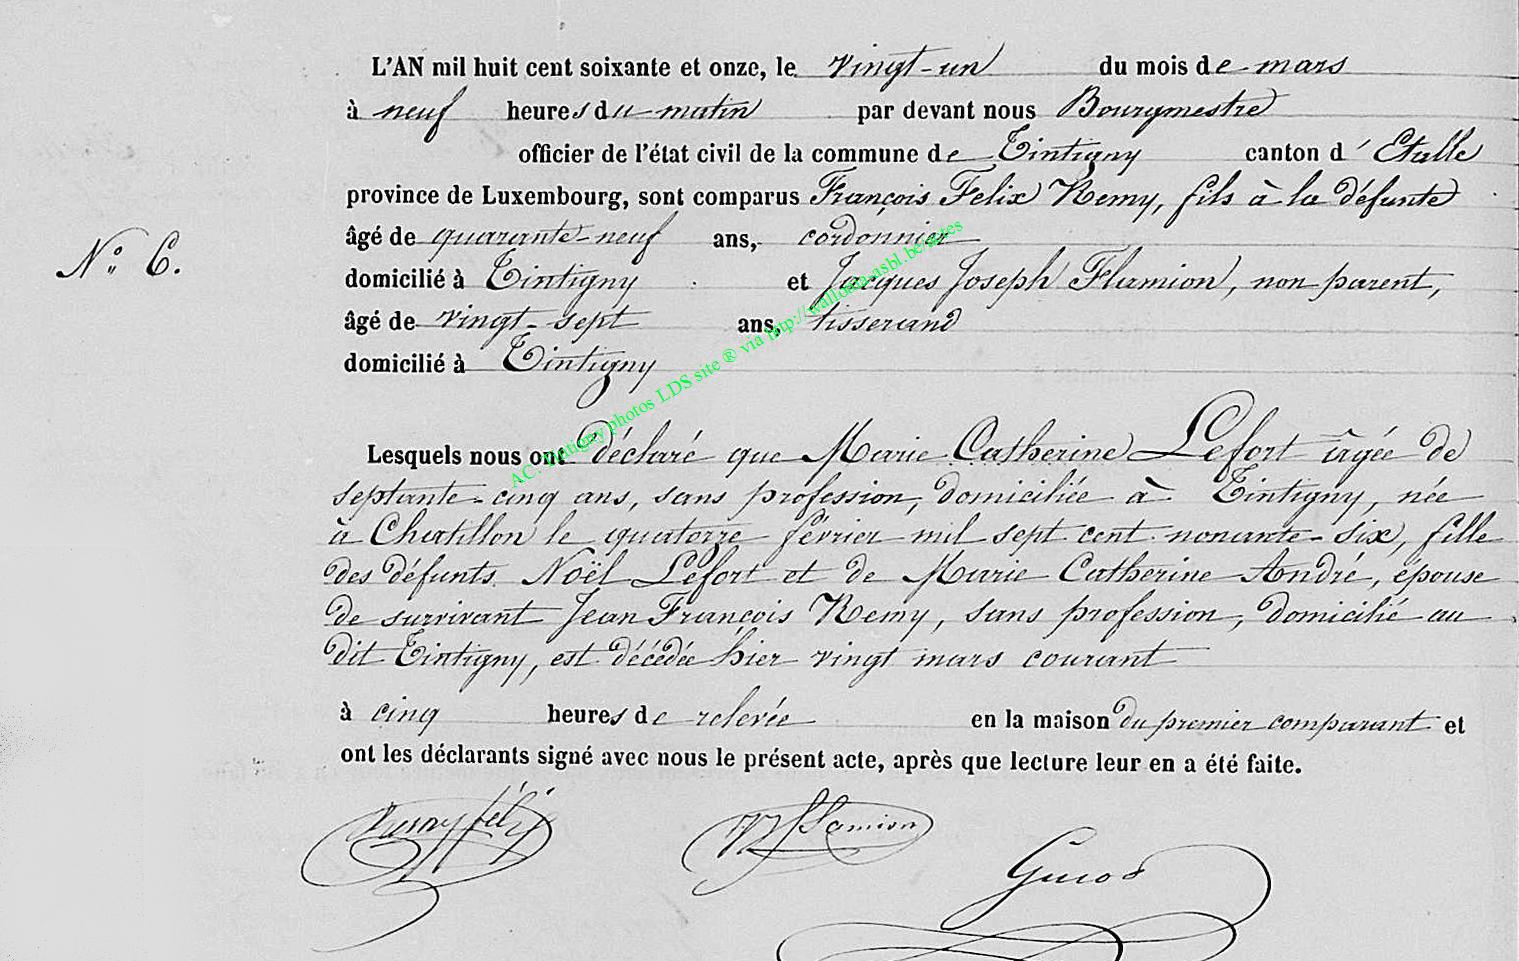 L'AN mil huit cent soixante et onze, le vingt-un du mois de mars
à neuf heures du matin par devant nous Bourgmestre
officier de l'état civil de la commune de Tintigny canton d'Etalle
province de Luxembourg, sont comparus François Felix Remy, fils à la défunte
âgé de quarante-neuf ans, cordonnier
N° 6.
domicilié à Tintigny et Jacques Joseph Flamion, non parent,
âgé de vingt-sept ans, tisserand
domicilié à Tintigny
Lesquels nous ont déclaré que Marie Catherine Lefort âgée de
septante-cinq ans, sans profession, domiciliée à Tintigny, née
à Chatillon le quatorze février mil sept cent nonante-six, fille
des défunts Noël Lefort et de Marie Catherine André, épouse
de survivant Jean François Remy, sans profession, domicilié au
dit Tintigny, est décédée hier vingt mars courant
à cinq heures de relevée en la maison du premier comparant et
ont les déclarants signé avec nous le présent acte, après que lecture leur en a été faite.
Remy féli JJ Flamion
AC. Tintigny photos LDS site ® via http://wallonia-asbl.be/actes